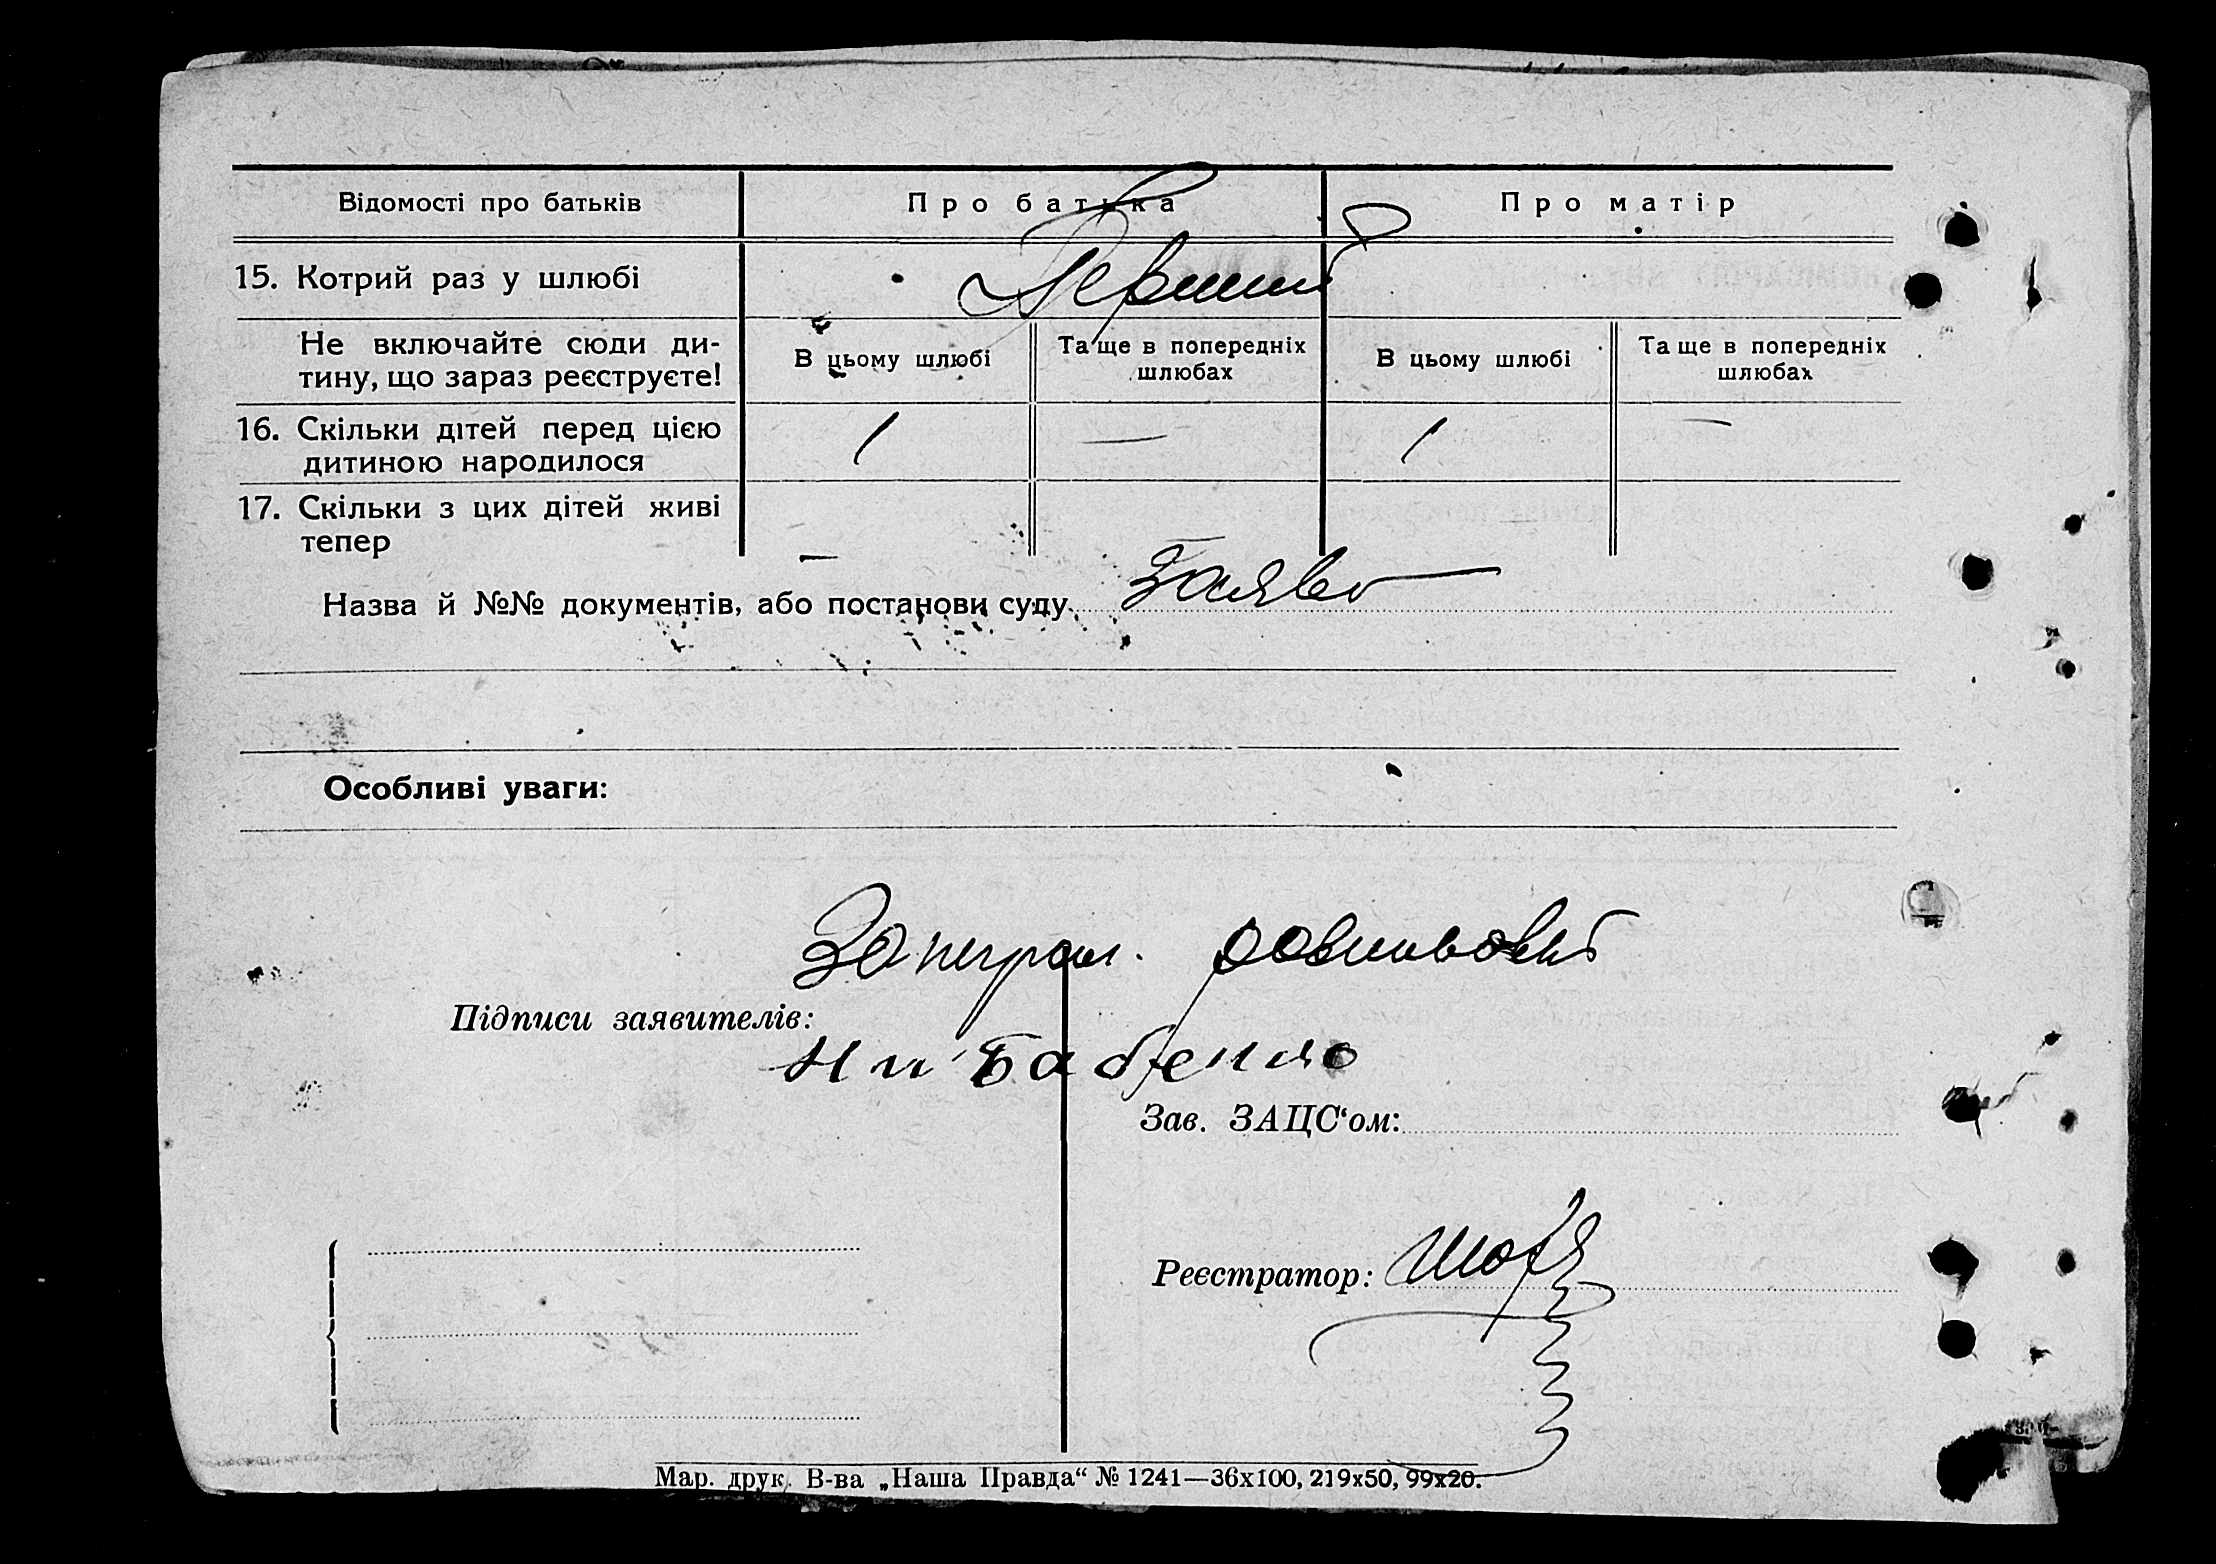 Відомості про батьків Про батька Про матір
15. Котрий раз у шлюбі Первий
Не включайте сюди ди-
тину, що зараз реєструєте!
В цьому шлюбі Та ще в попередніх шлюбах В цьому шлюбі Та ще в попередніх шлюбах
16. Скільки дітей перед цією 1 — 1 —
дитиною народилося
17. Скільки з цих дітей живі
тепер —
Назва й №№ документів, або постанови суду Заява
Особливі уваги:
Підписи заявителів:
Бабенко
Зав. ЗАЦС‘ом:
Реєстратор:
Мар. друк. В-ва „Наша Правда“ № 1241—36х100, 219х50, 99х20.